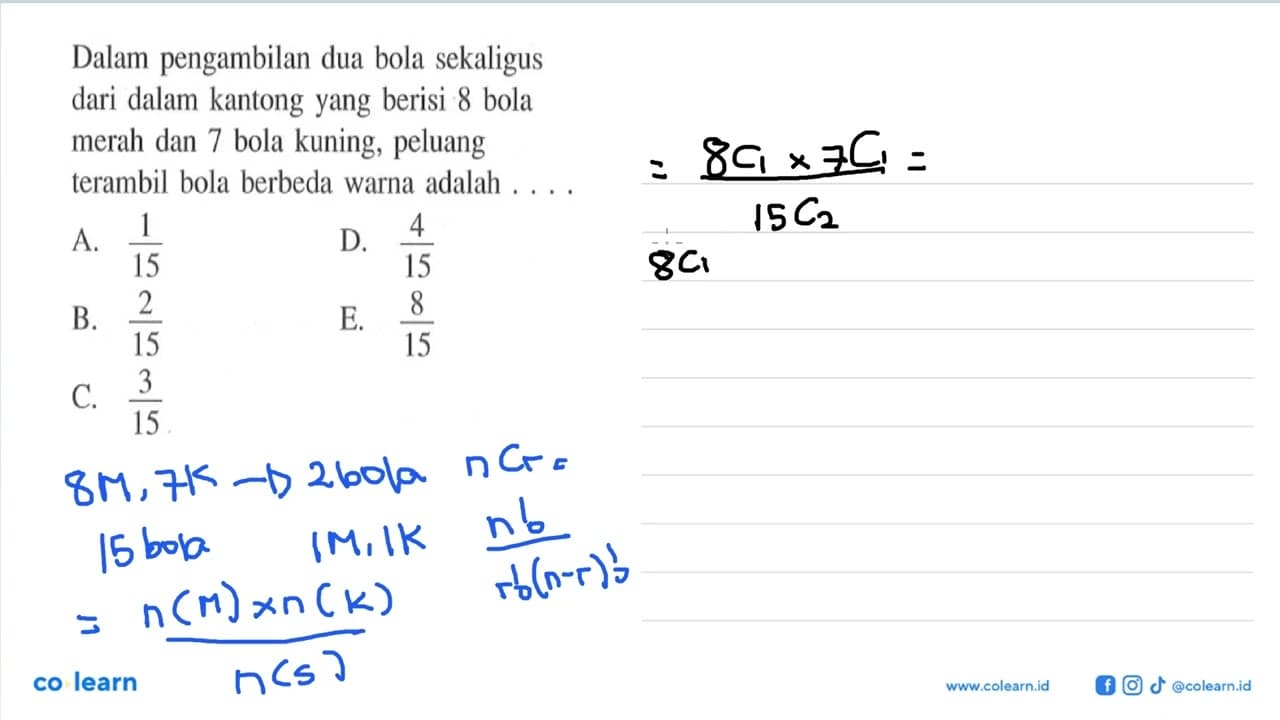 Dalam pengambilan dua bola sekaligus
dari dalam kantong yang berisi 8 bola
merah dan 7 bola kuning, peluang
terambil bola berbeda warna adalah . . . .
A. 1/15
D. 4/15
B. 2/15
E. 8/15
C. 3/15
8M, 7K → 2 bola
15 bola 1M, 1K
= n(M) x n(K)
n(S)
nCr =
n!
r!(n-r)!
= 8C1 x 7C1 =
15C2
8C1
co learn
www.colearn.id
@colearn.id